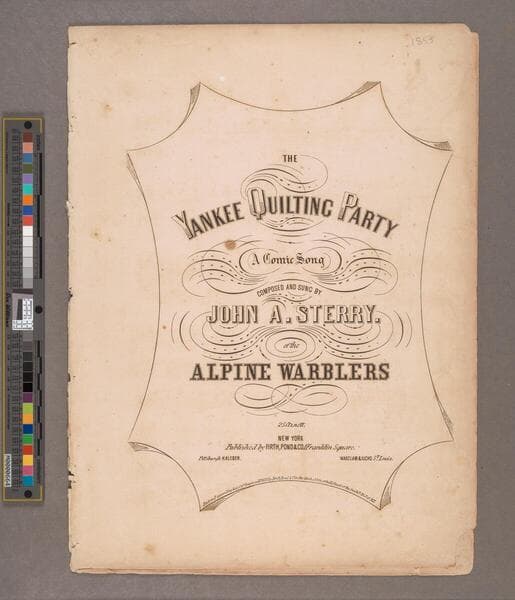 1853
THE
YANKEE QUILTING PARTY
A Comic Song
COMPOSED AND SUNG BY
JOHN A. STERRY.
of the
ALPINE WARBLERS
25 Cts. nett.
NEW YORK
Published by FIRTH, POND & CO. 1 Franklin Square.
Pittsburgh H. KLEBER. St. Louis.